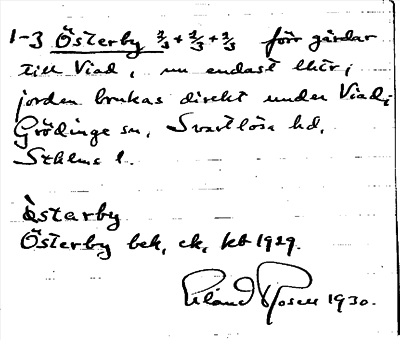 1-3 Österby 2/3 + 2/3 + 2/3 förr gårdar
till Viad, nu endast lhtr;
jorden brukas direkt under Viad;
Grödinge sn, Svartlösa hd,
Sthlms l.
östarby
Österby bek, ek, kb 1929.
Erland Rosell 1930.